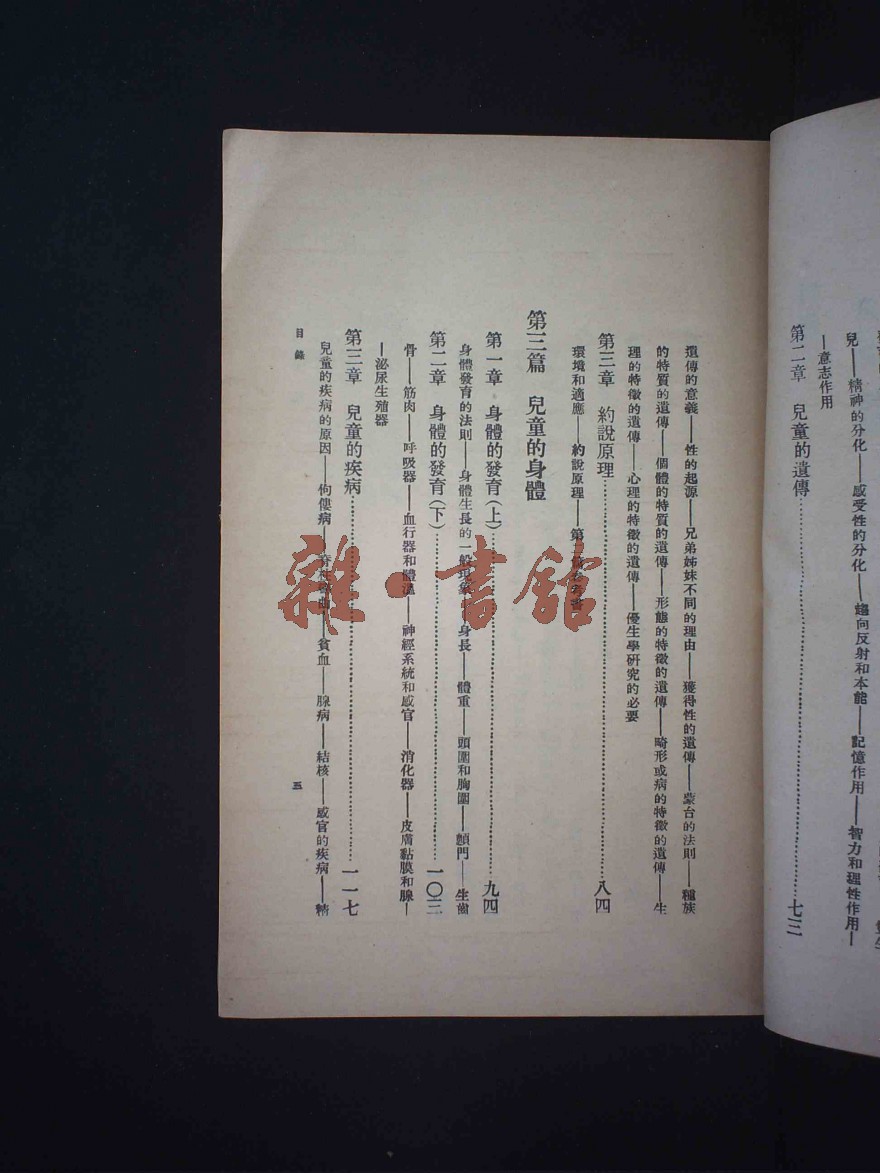 兒——精神的分化——感受性的分化——趨向反射和本能——記憶作用——智力和理性作用—
—意志作用
第二章　兒童的遺傳…………七三
遺傳的意義——性的起源——兄弟姊妹不同的理由——獲得性的遺傳——蒙台的法則——種族
的特質的遺傳——個體的特質的遺傳——形態的特徵的遺傳——畸形或病的特徵的遺傳——生
理的特徵的遺傳——心理的特徵的遺傳——優生學研究的必要
第三章　約說原理…………八四
環境和適應——約說原理——第二篇參考書
第三篇　兒童的身體
第一章　身體的發育(上)…………九四
身體發育的法則——身體生長的一般現象——身長——體重——頭圍和胸圍——顖門——生齒
第二章　身體的發育(下)…………一〇三
骨——筋肉——呼吸器——血行器和體溫——神經系統和感官——消化器——皮膚黏膜和腺—
—泌尿生殖器
第三章　兒童的疾病…………一一七
兒童的疾病的原因——佝僂病——脊柱彎曲——貧血——腺病——結核——感官的疾病——精
目錄
五
雜·書館